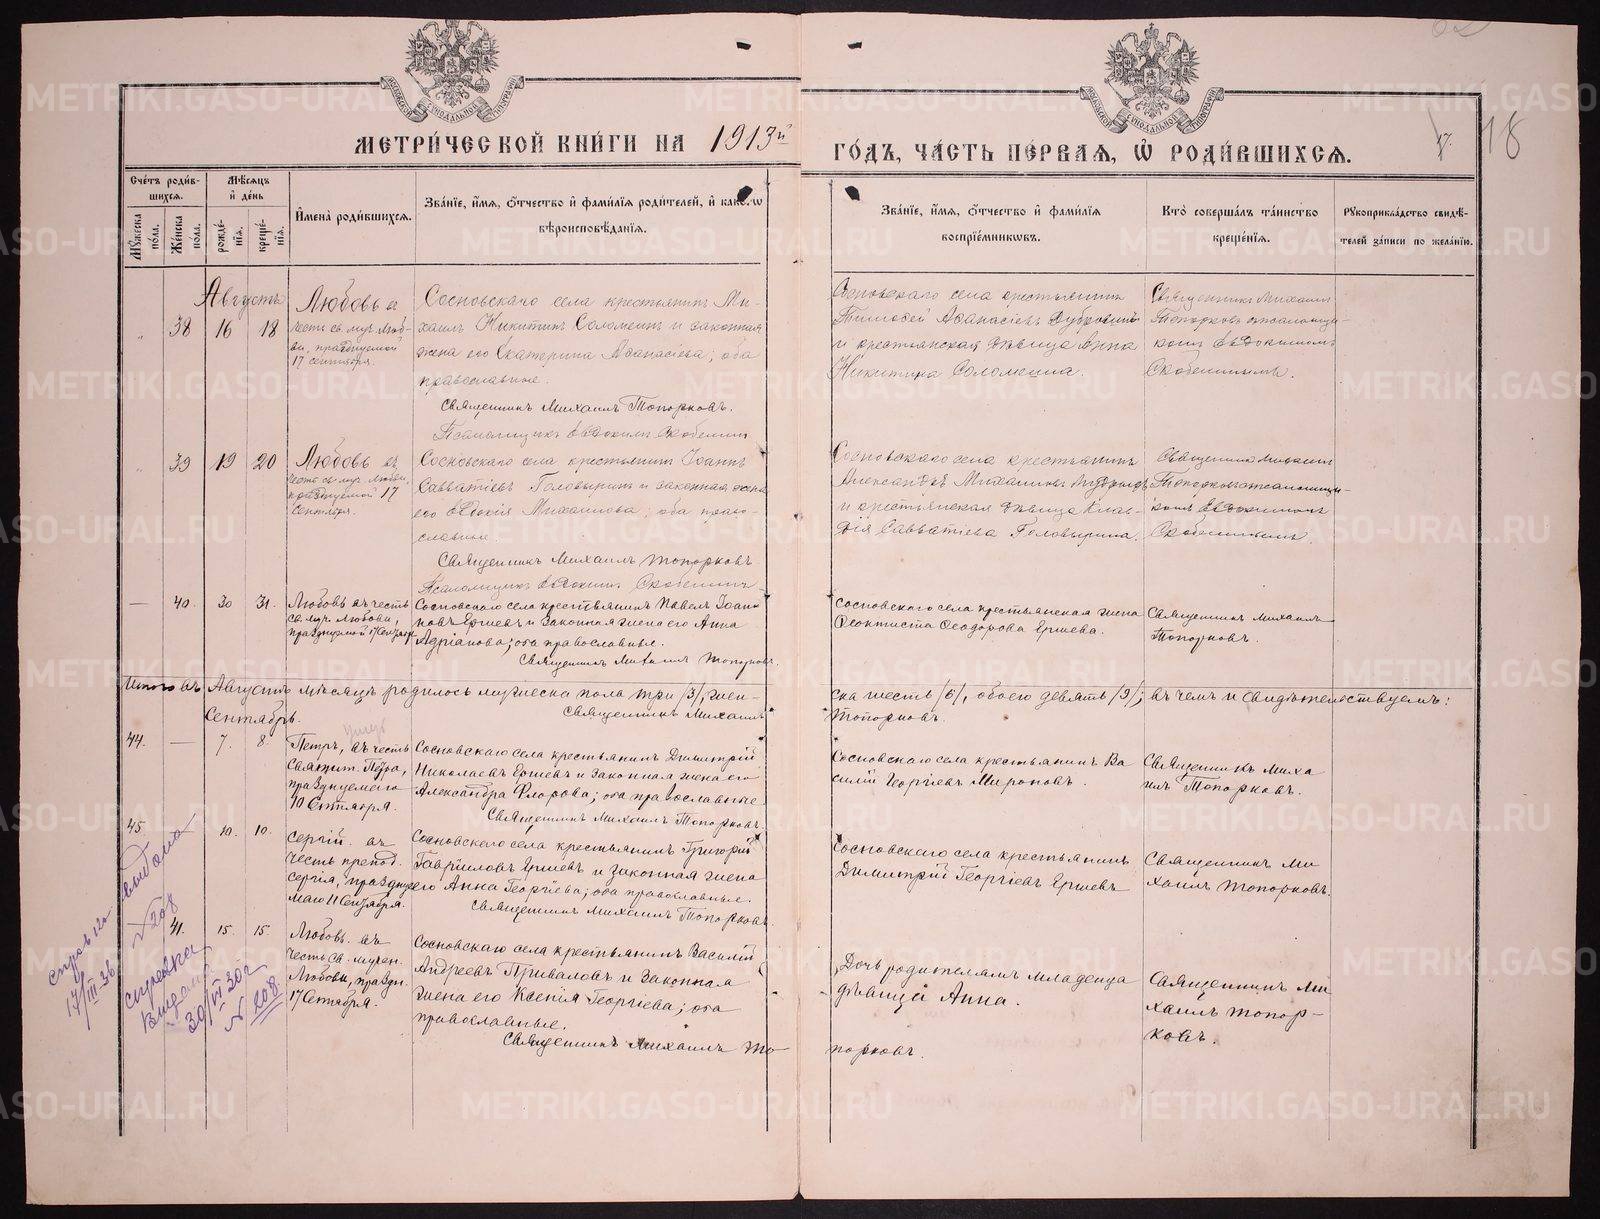 МЕТРИ́ЧЕСКОЙ КНИ́ГИ НА 1913й
ГО́ДЪ, ЧА́СТЬ ПЕ́РВАЯ, Ѡ҆ РОДИ́ВШИХСЯ.
17. 18
Сче́тъ роди́вшихся.
Мꙋ́жеска по́ла.
Же́нска по́ла.
Мѣ́сяцъ и҆ де́нь
рожде́нїя.
креще́нїя.
И҆мена̀ роди́вшихся.
Зва́нїе, и҆́мя, ѻ҆́тчество и҆ фами́лїя роди́телей, и҆ како́гѡ
вѣроисповѣ́данїя.
Зва́нїе, и҆́мя, ѻ҆́тчество и҆ фами́лїя
воспрїе́мникѡвъ.
Кто̀ соверша́лъ та́инство
креще́нїя.
Рꙋкоприкла́дство свидѣ́-
телей за́писи по жела́нїю.
Августъ
„ 38 16 18
Любовь въ
честь св. муч. Люб-
ви, празднуемой
17 сентября.
Сосновскаго села крестьянинъ Ми-
хаилъ Никитинъ Соломеинъ и законная
жена его Екатерина Аѳанасіева; оба
православные.
Священникъ Михаилъ Топорковъ.
Псаломщикъ Евдокимъ Скобелкинъ
Сосновскаго села крестьянинъ
Тимоѳей Аѳанасіевъ Дубровинъ
и крестьянская дѣвица Анна
Никитина Соломеина.
Священникъ Михаилъ
Топорковъ съ псаломщи-
комъ Евдокимомъ
„ 39 19 20
Любовь въ
честь св. муч. Любви,
празднуемой 17
Сентября.
Сосновскаго села крестьянинъ Іоаннъ
Савватіевъ Головыринъ и законная жена
его Евдокія Михаилова; оба право-
славные.
Священникъ Михаилъ Топорковъ
Псаломщикъ Евдокимъ
Сосновскаго села крестьянинъ
Александръ Михаиловъ
и крестьянская дѣвица Клав-
дія Савватіева Головырина.
Священникъ Михаилъ
Топорковъ съ псаломщи-
комъ Евдокимомъ
— 40. 30 31.
Любовь въ честь
св. муч. Любови,
празднуемой 17 Сентября
Сосновскаго села крестьянинъ Павелъ Іоан-
новъ Ершевъ и законная жена его Анна
Адріанова; оба православные.
Священникъ Михаилъ Топорковъ.
Сосновскаго села крестьянская жена
Ѳеоктиста Ѳеодорова Ершева.
Священникъ Михаилъ
Топорковъ.
Итого въ Августѣ мѣсяцѣ родилось мужеска пола три /3/, жен-
ска шесть /6/, обоего девять /9/; въ чемъ и свидѣтельствуемъ:
Священникъ Михаилъ
Топорковъ.
Сентябрь.
44. — 7. 8.
Петръ, въ честь
Святит. Петра,
празднуемаго
10 Сентября.
Сосновскаго села крестьянинъ Димитрій
Николаевъ Ершевъ и законная жена его
Александра Флорова; оба православные
Священникъ Михаилъ Топорковъ.
Сосновскаго села крестьянинъ Ва
силій Георгіевъ Мироновъ.
Священникъ Миха
илъ Топорковъ.
45. 10. 10.
Сергій въ
честь препод.
Сергія, праздну
маго 11 Сентября.
Сосновскаго села крестьянинъ Григорій
Гавріиловъ Ершевъ и законная жена
его Анна Георгіева; оба православные.
Священникъ Михаилъ Топорковъ
Сосновскаго села крестьянинъ
Димитрій Георгіевъ Ершевъ
Священникъ Ми
хаилъ Топорковъ.
41. 15. 15.
Любовь въ
честь св. мучен.
Любови, праздн.
17 Сентября.
Сосновскаго села крестьянинъ Василій
Андреевъ Приваловъ и законная
жена его Ксенія Георгіева; оба
православные.
Священникъ Михаилъ То
порковъ.
Дочь родителямъ младенца
дѣвица Анна.
Священникъ Ми
хаилъ Топор-
ковъ.
выдана
№ 208
17/III 36
справка
Выдана
30/VI 30г
№ 208
METRIKI.GASO-URAL.RU